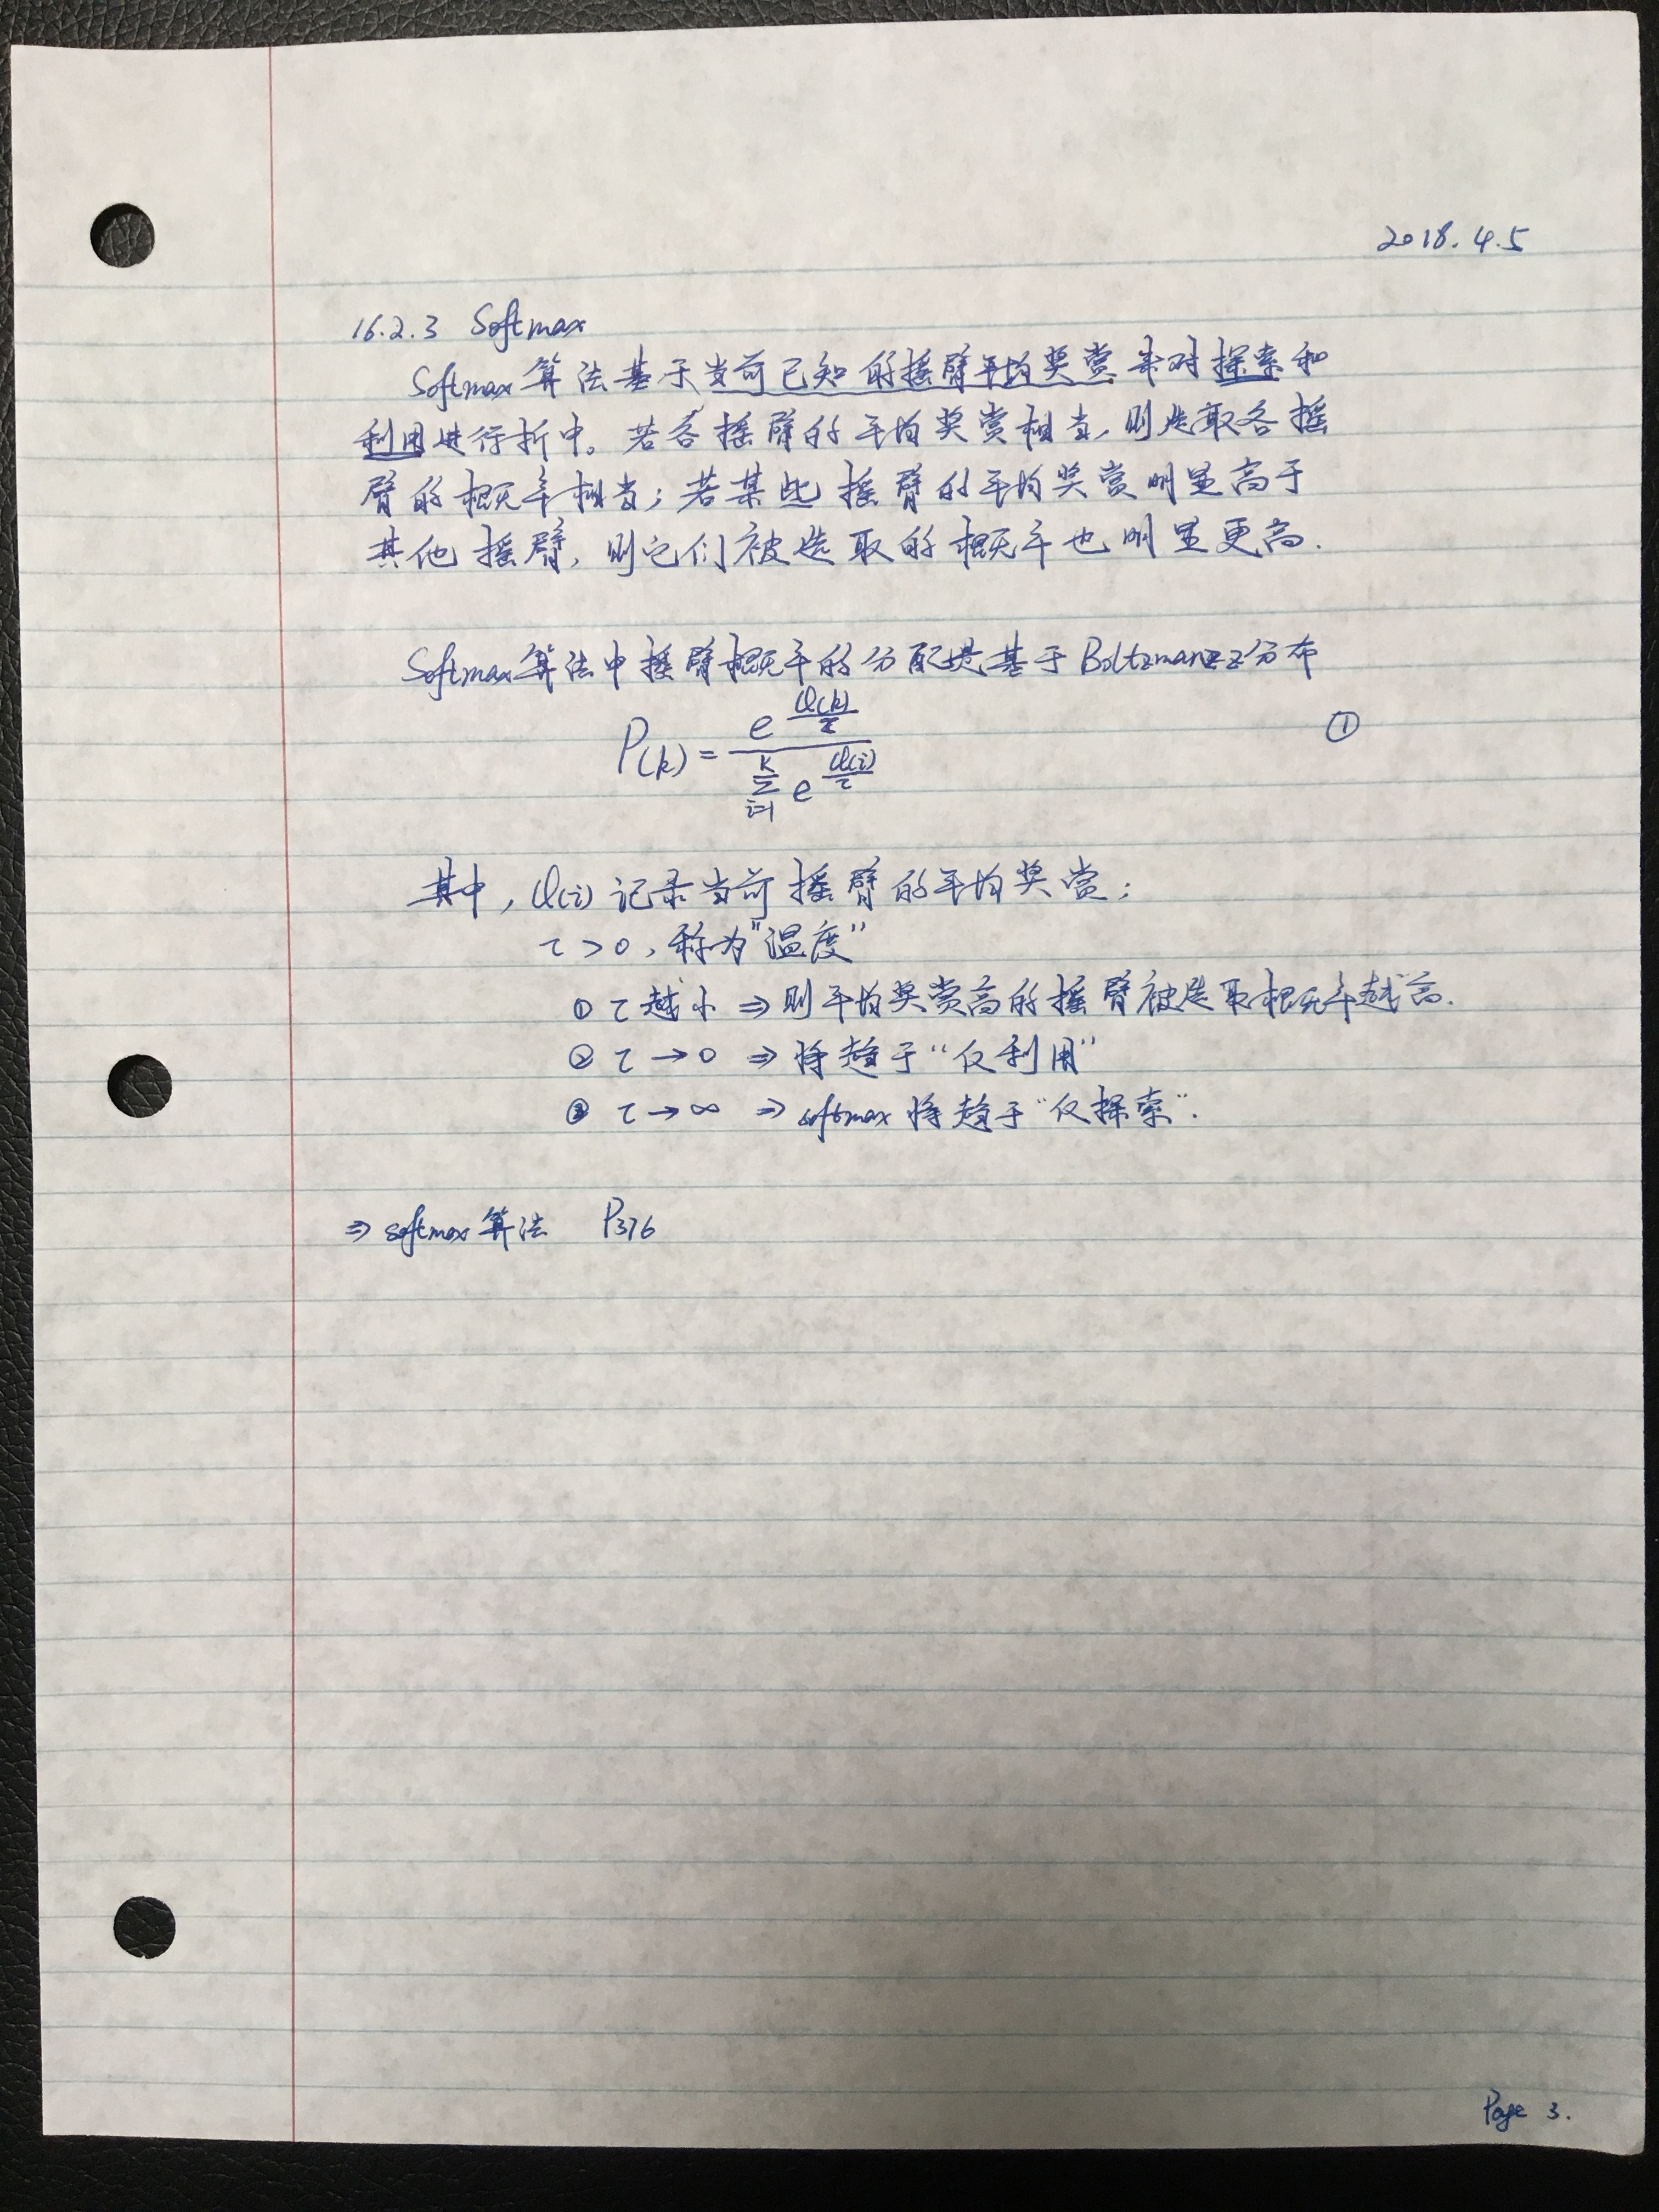 2018.4.5
16.2.3 Softmax
Softmax算法基于当前已知的摇臂平均奖赏来对探索和
利用进行折中。若各摇臂的平均奖赏相当,则选取各摇
臂的概率相当;若某些摇臂的平均奖赏明显高于
其他摇臂,则它们被选取的概率也明显更高.
Softmax算法中摇臂概率的分配是基于Boltzmanzz分布
P(k) = \frac{e^{\frac{Q(k)}{τ}}}{\sum_{i=1}^{K} e^{\frac{Q(i)}{τ}}} ①
其中, Q(i) 记录当前摇臂的平均奖赏;
τ > 0, 称为"温度"
① τ 越小 ⇒ 则平均奖赏高的摇臂被选取概率越高.
② τ → 0 ⇒ 将趋于"仅利用"
③ τ → ∞ ⇒ softmax 将趋于"仅探索".
⇒ softmax 算法 P376
Page 3.